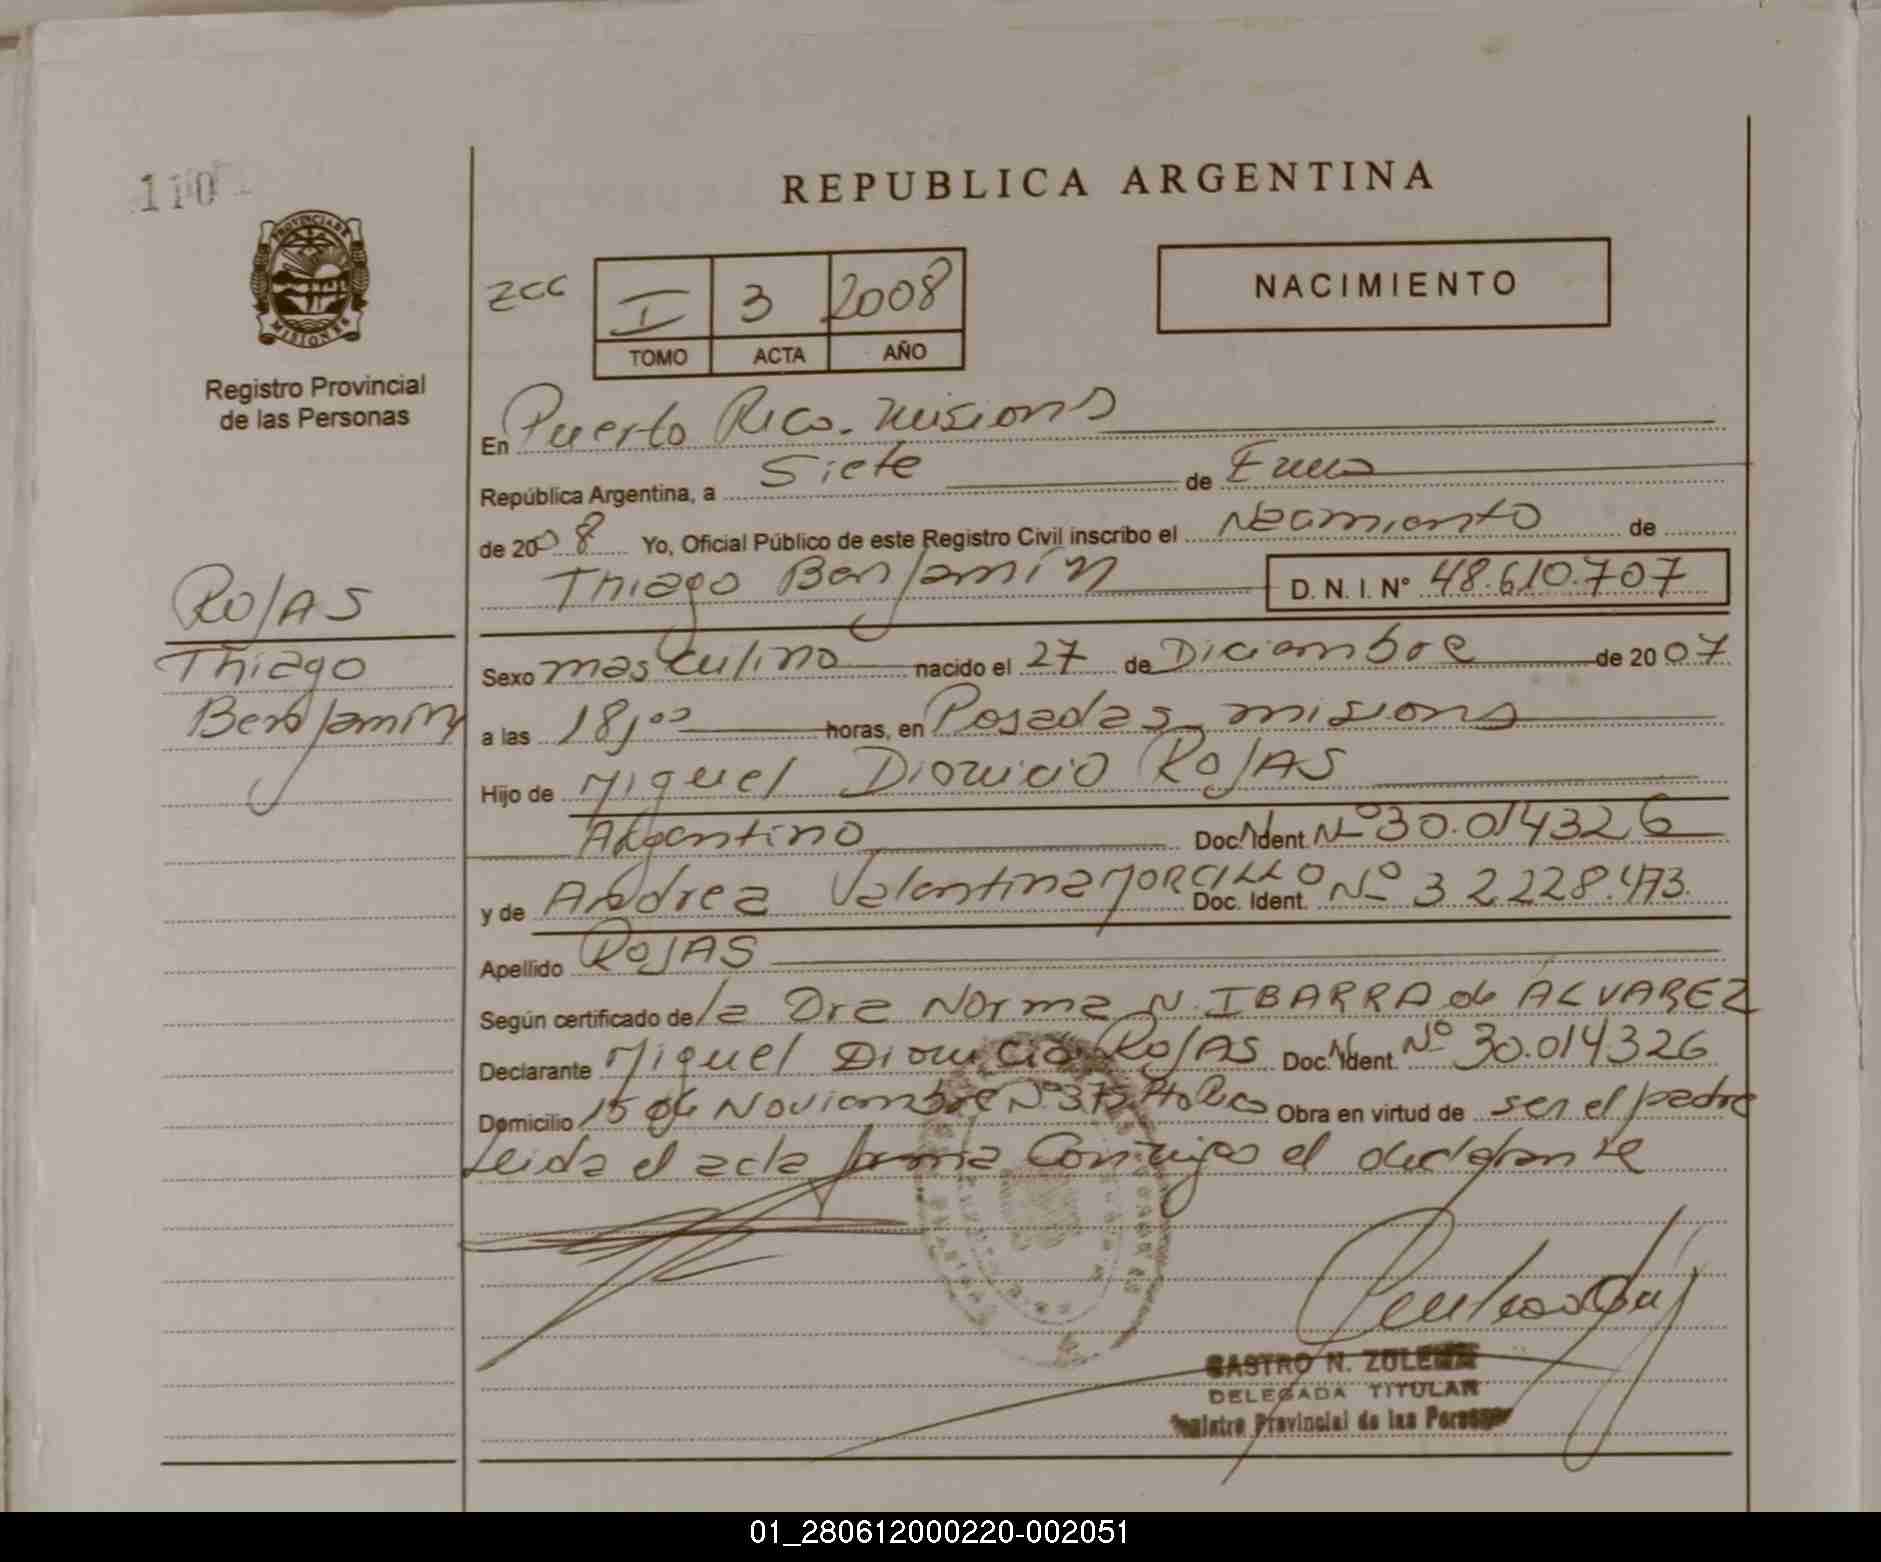 110
REPUBLICA ARGENTINA
PROVINCIA DE
MISIONES
Registro Provincial
de las Personas
ZCC
I 3 2008
TOMO ACTA AÑO
NACIMIENTO
En Puerto Rico. Misiones
República Argentina, a Siete de Enero
de 2008 Yo, Oficial Público de este Registro Civil inscribo el Nacimiento de
Thiago Benjamín D. N. I. Nº 48.610.707
ROJAS
Thiago
Benjamín
Sexo masculino nacido el 27 de Diciembre de 2007
a las 18,00 horas, en Posadas misiones
Hijo de Miguel Dionicio ROJAS
Argentino Doc. Ident. Nº 30.014326
y de Andrea Valentina MORCILLO Doc. Ident. Nº 32.228.473.
Apellido ROJAS
Según certificado de la Dra Norma N. IBARRA de ALVAREZ
Declarante Miguel Dionicio ROJAS Doc. Ident. Nº 30.014326
Domicilio 15 de Noviembre Nº 375 Pto Rico Obra en virtud de ser el padre
Leida el acta firma Conmigo el declarante
CASTRO N. ZULEMA
DELEGADA TITULAR
Registro Provincial de las Personas
01_280612000220-002051